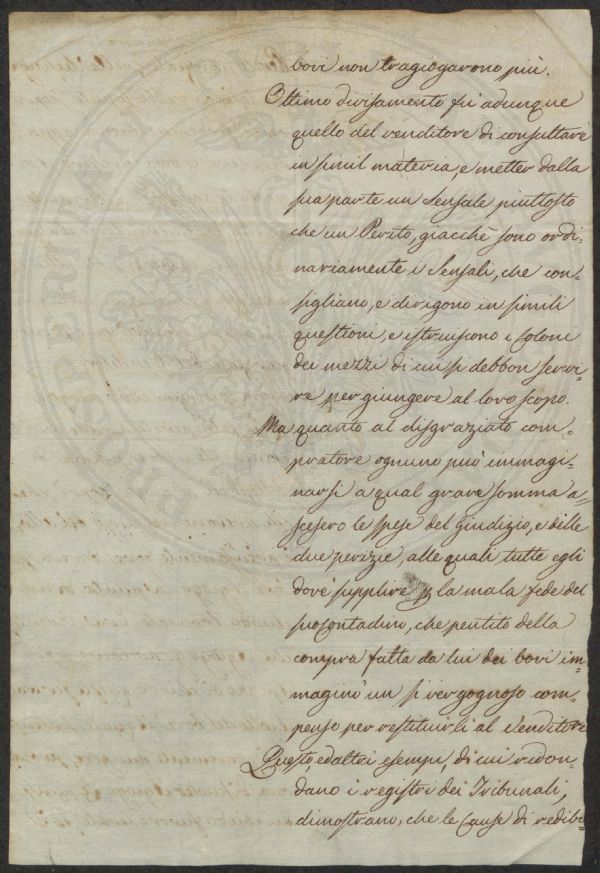 bovi non tragiogarono più.
Ottimo divisamento fu adunque
quello del venditore di consultare
in simil materia, e metter dalla
sua parte un Sensale piuttosto
che un Perito, giacchè sono ordi=
nariamente i Sensali, che con=
sigliano, e dirigono in simili
questioni, e istruiscono i Coloni
dei mezzi di cui si debbon servi=
re per giungere al loro scopo.
Ma quanto al disgraziato com=
pratore ognuno può immagi=
narsi a qual grave somma a=
scesero le spese del Giudizio, e delle
due perizie, alle quali tutte egli
dovè supplire p la mala fede del
suo Contadino, che pentito della
compra fatta da lui dei bovi im=
maginò un sì vergognoso com=
penso per restituirli al Venditore
Questo, ed altri esempi, di cui ridon=
dano i registri dei Tribunali,
dimostrano, che le Cause di redibi=